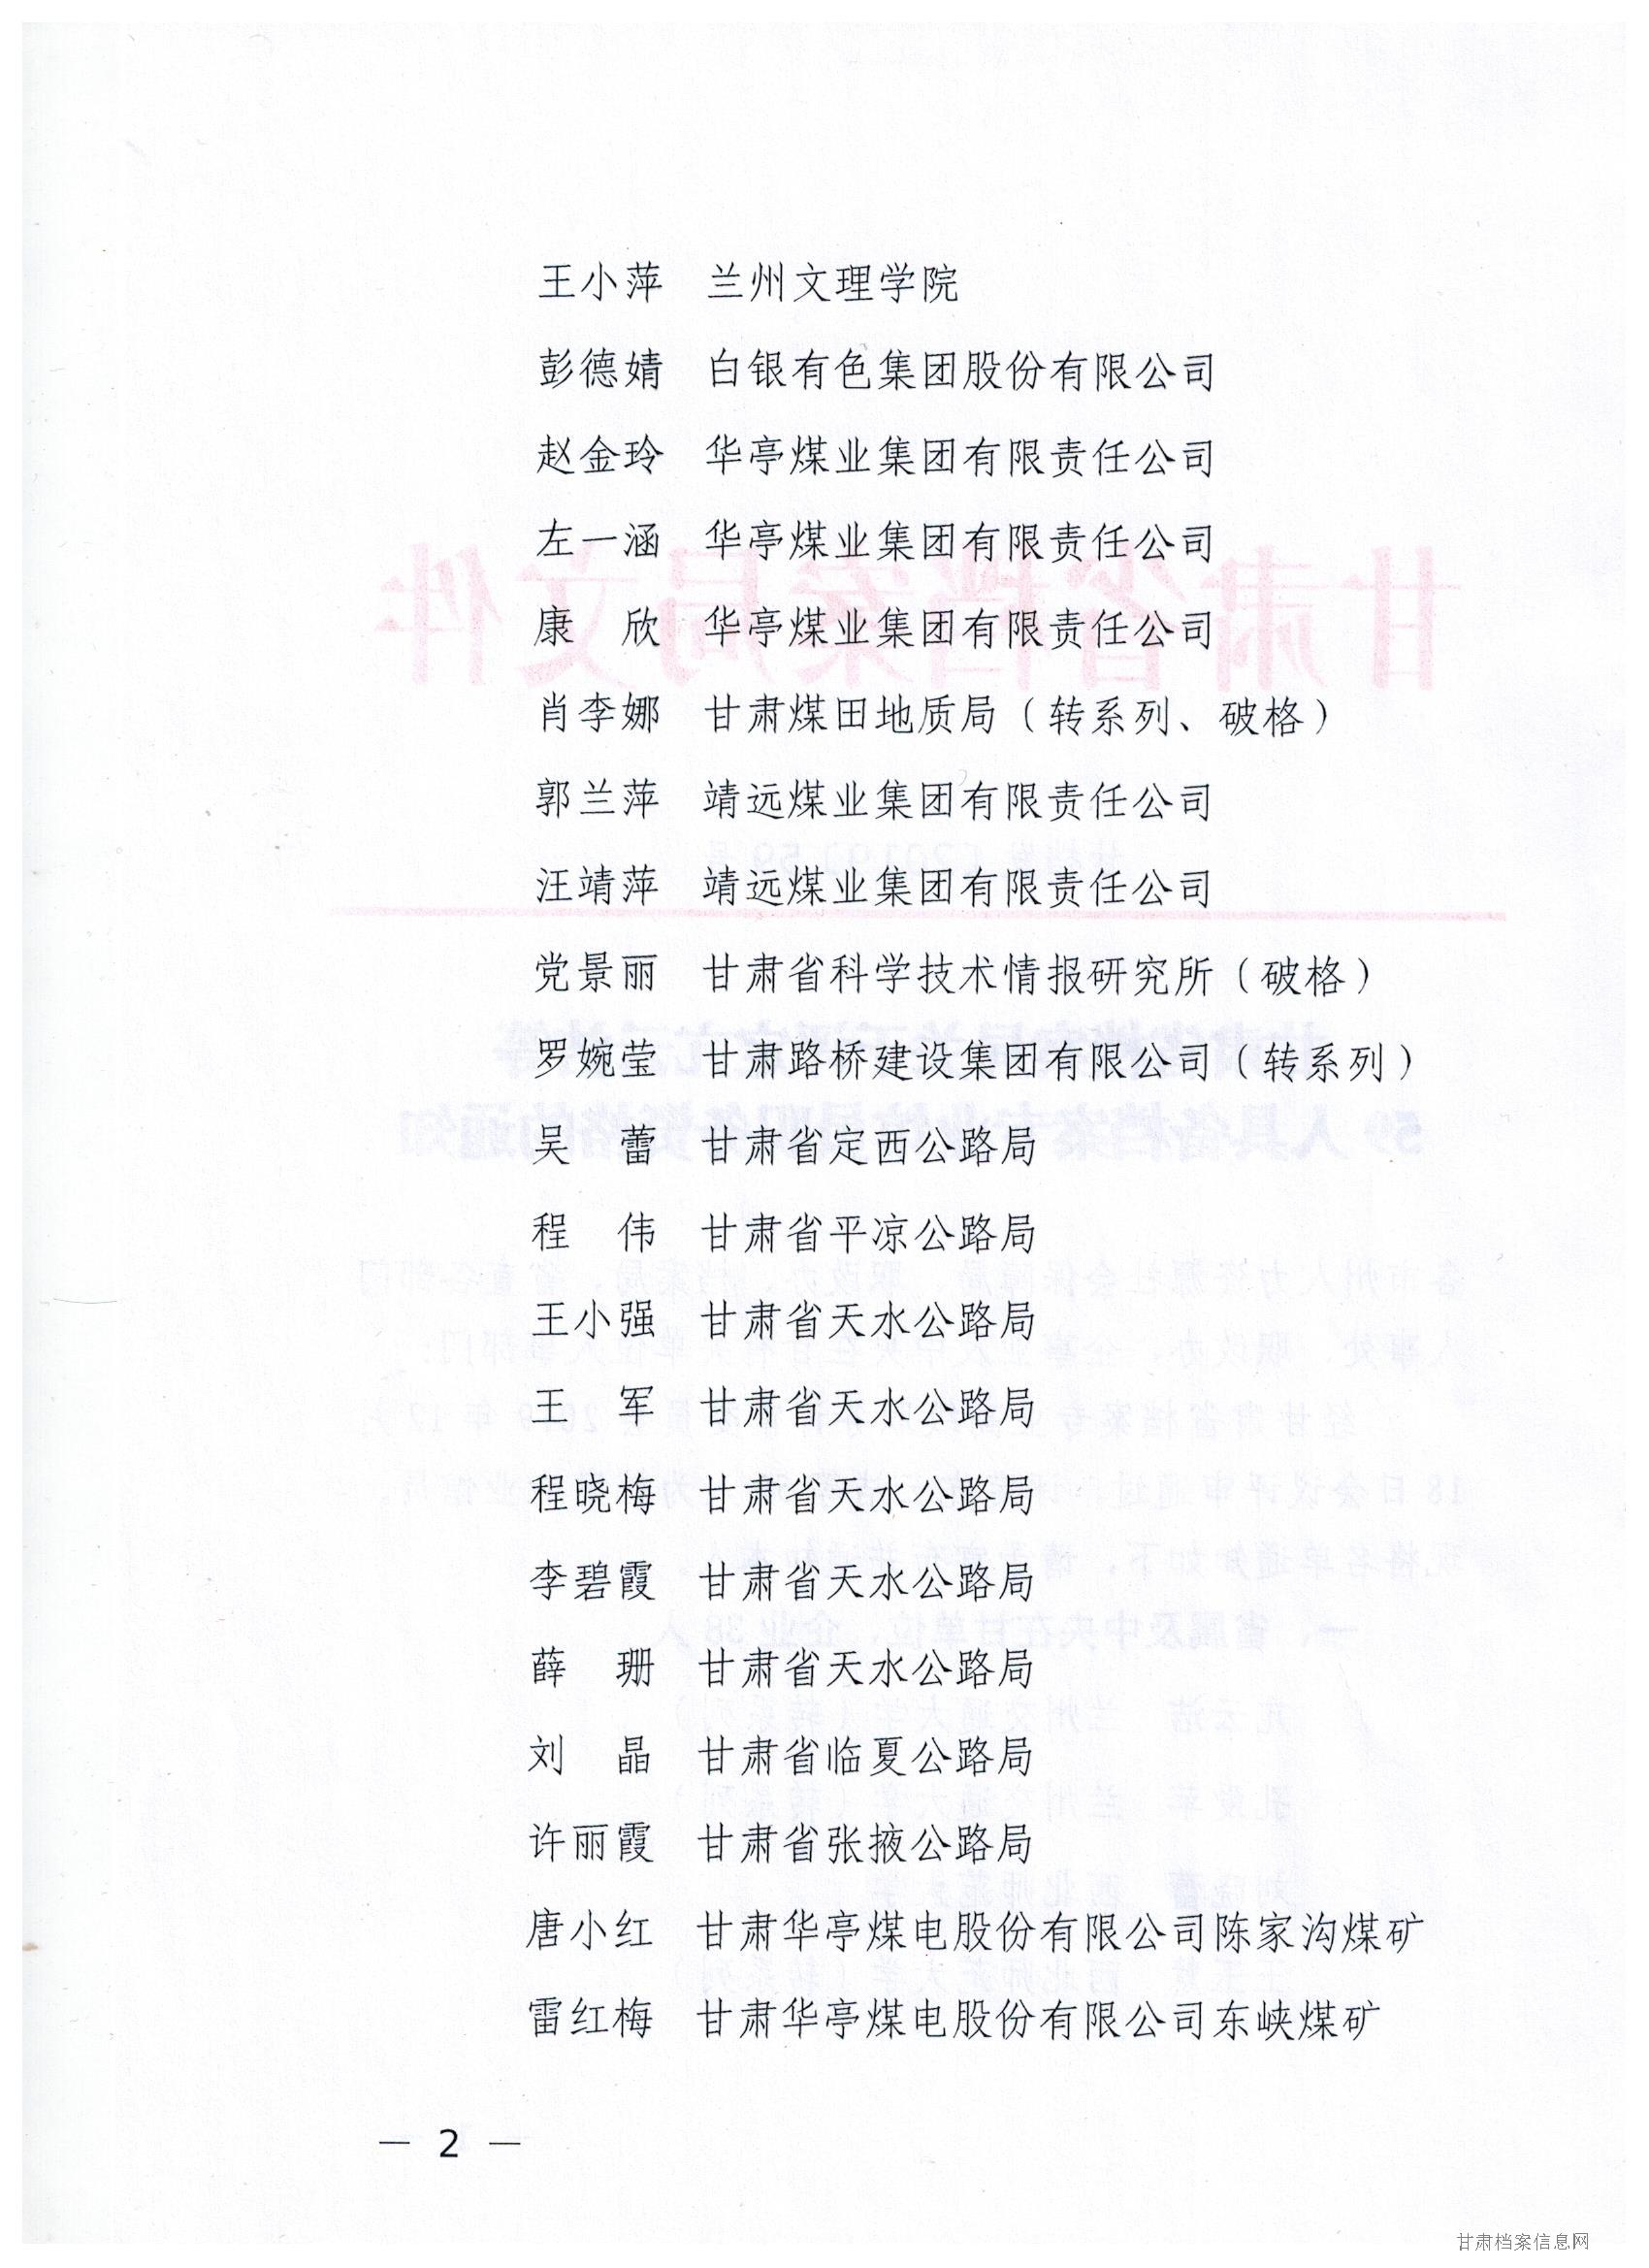 王小萍 兰州文理学院
彭德婧 白银有色集团股份有限公司
赵金玲 华亭煤业集团有限责任公司
左一涵 华亭煤业集团有限责任公司
康 欣 华亭煤业集团有限责任公司
肖李娜 甘肃煤田地质局（转系列、破格）
郭兰萍 靖远煤业集团有限责任公司
汪靖萍 靖远煤业集团有限责任公司
党景丽 甘肃省科学技术情报研究所（破格）
罗婉莹 甘肃路桥建设集团有限公司（转系列）
吴 蕾 甘肃省定西公路局
程 伟 甘肃省平凉公路局
王小强 甘肃省天水公路局
王 军 甘肃省天水公路局
程晓梅 甘肃省天水公路局
李碧霞 甘肃省天水公路局
薛 珊 甘肃省天水公路局
刘 晶 甘肃省临夏公路局
许丽霞 甘肃省张掖公路局
唐小红 甘肃华亭煤电股份有限公司陈家沟煤矿
雷红梅 甘肃华亭煤电股份有限公司东峡煤矿
— 2 —
甘肃档案信息网